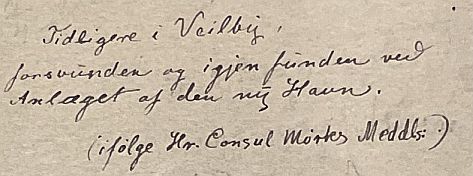 Tidligere i Veilby,
forsvunden og igjen funden ved
Anlæget af den ny Havn.
(ifølge Hr. Consul Mörks Meddls:)